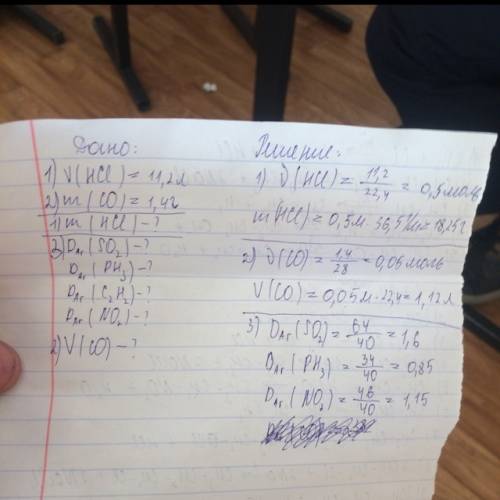 Дано:
1) V(HCl) = 11,2 л
2) m(CO) = 1,4 г
1) m(HCl) - ?
3) D_Ar(SO₂) - ?
D_Ar(PH₃) - ?
D_Ar(C₂H₂) - ?
D_Ar(NO₂) - ?
2) V(CO) - ?
Решение:
1) ϑ(HCl) = 11,2/22,4 = 0,5 моль
m(HCl) = 0,5м · 36,5 = 18,25 г
2) ϑ(CO) = 1,4/28 = 0,05 моль
V(CO) = 0,05м · 22,4 = 1,12 л
3) D_Ar(SO₂) = 64/40 = 1,6
D_Ar(PH₃) = 34/40 = 0,85
D_Ar(NO₂) = 46/40 = 1,15